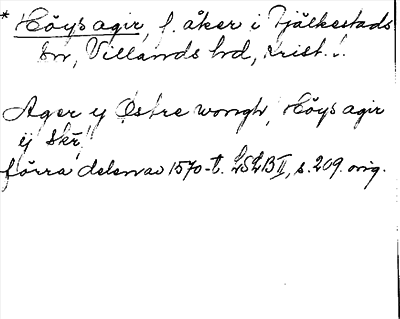 * Höys agir, f. åker i Fjälkestads
sn, Villands hd, Krist. l.
Ager y Østre wongh, Höys agir
ij Skr
förra delen av 1570-t. LSLB II, s. 209. orig.